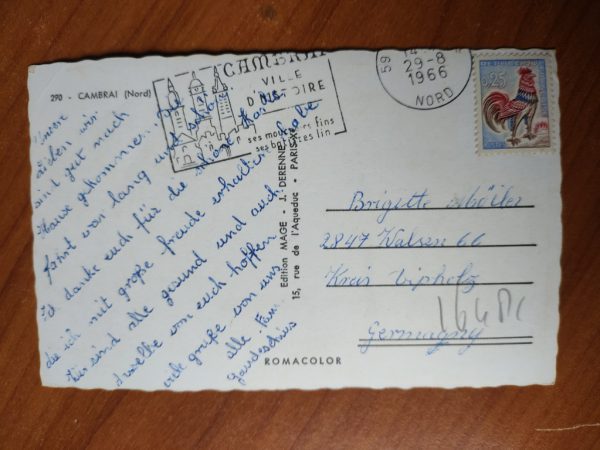 290 - CAMBRAI (Nord)
CAMBRAI
VILLE
D'HISTOIRE
ses mouchoirs fins
ses batistes lin
59
29-8
1966
NORD
0,25
wir
sind gut nach
Hause gekommen. die
fahrt war lang und
Ich danke euch für die schöne Karte
die ich mit große freude erhalten habe
Wir sind alle gesund und auch
dasselbe von euch hoffen
viele grüße von uns
alle. Fam.
Edition MAGE - J. DERENNE
15, rue de l'Aqueduc - PARIS-Xe
ROMACOLOR
Brigitte
2847 Walsen 66
Kreis Dipholz
Germagny
164